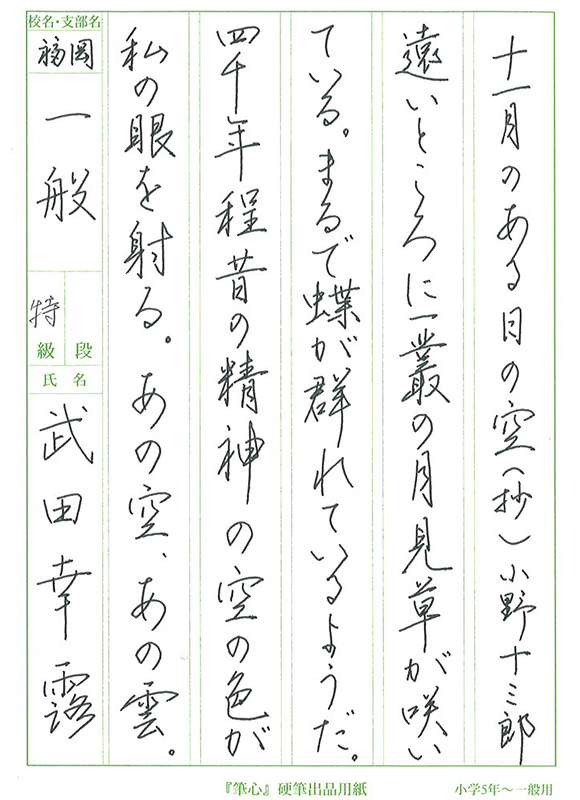 十一月のある日の空(抄)小野十三郎
遠いところに一叢の月見草が咲い
ている。まるで蝶が群れているようだ。
四千年程昔の精神の空の色が
私の眼を射る。あの空、あの雲。
校名・支部名
福岡
一般
特
級 段
氏名
武田幸露
『筆心』硬筆出品用紙
小学5年〜一般用